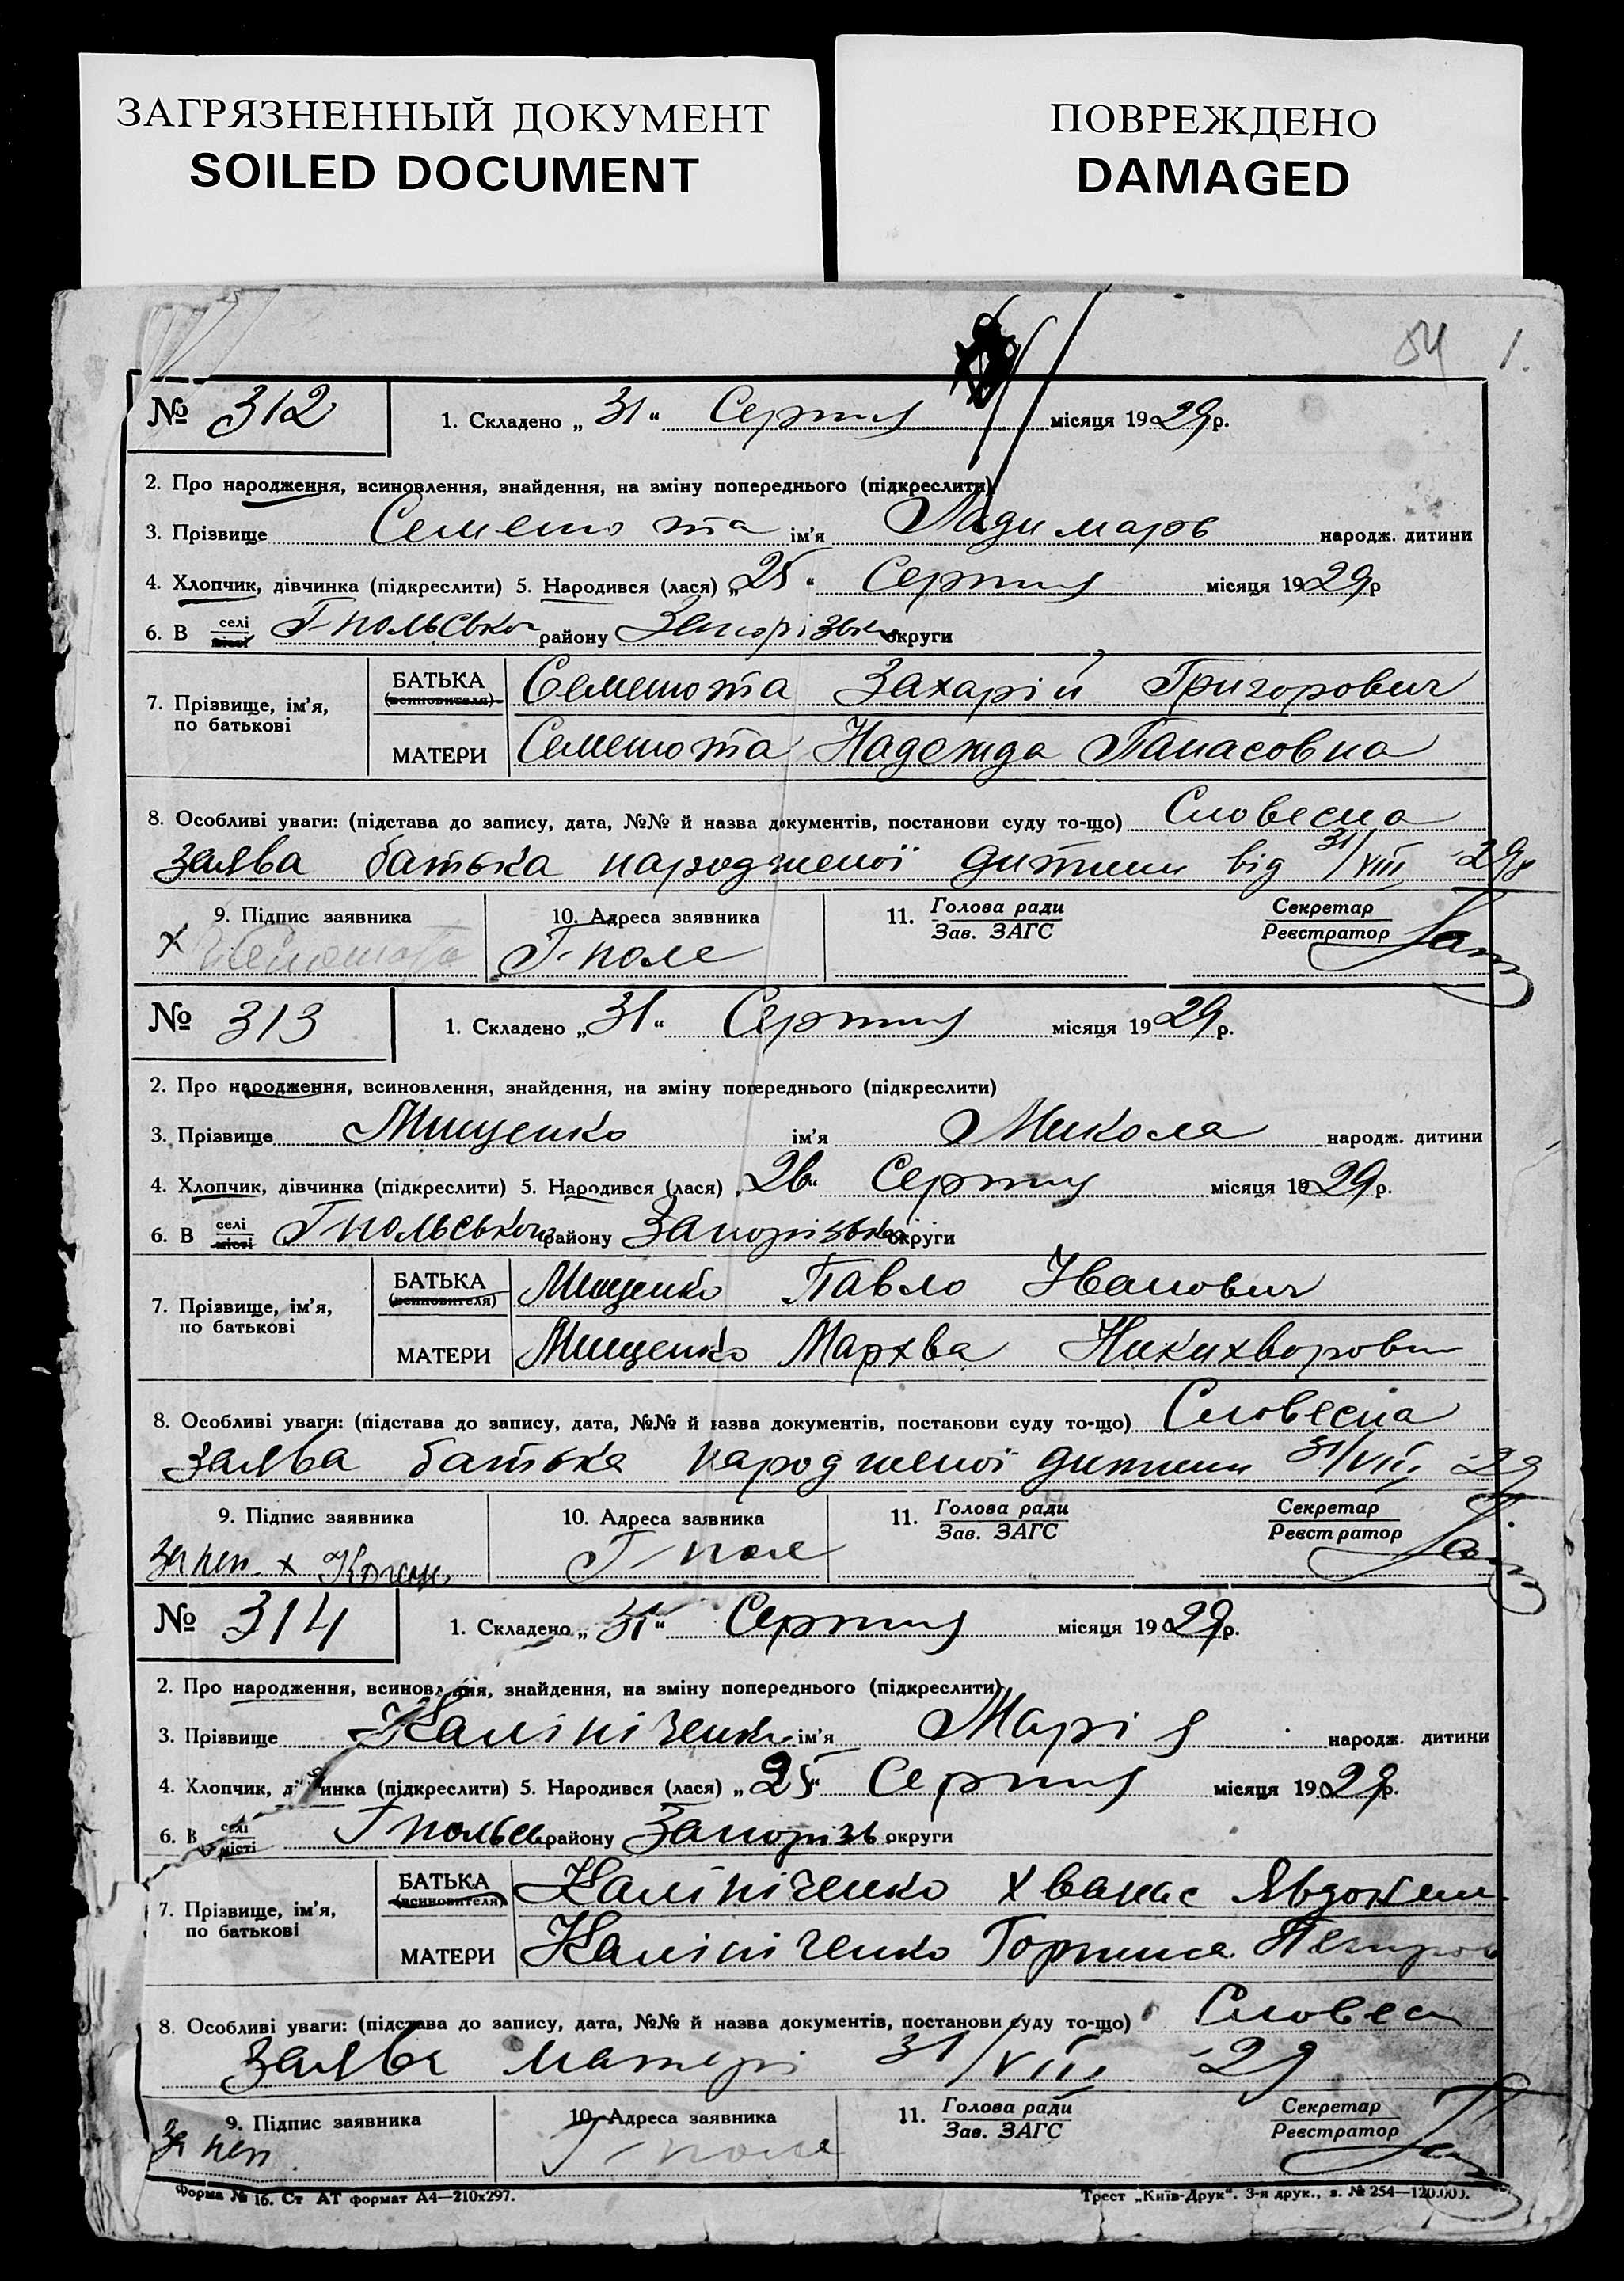 ЗАГРЯЗНЕННЫЙ ДОКУМЕНТ
SOILED DOCUMENT
ПОВРЕЖДЕНО
DAMAGED
54 1.
№ 312 1. Складено „31“ Серпня місяця 1929 р.
2. Про народження, всиновлення, знайдення, на зміну попереднього (підкреслити)
3. Прізвище Семенюта ім'я народж. дитини
4. Хлопчик, дівчинка (підкреслити) 5. Народився (лася) „25“ Серпня місяця 1929 р
6. В селі місті Г-польсько району Запорізьк округи
7. Прізвище, ім'я, по батькові
БАТЬКА (всиновителя) Семенюта Захарій Григорович
МАТЕРИ Семенюта Надежда Панасовна
8. Особливі уваги: (підстава до запису, дата, №№ й назва документів, постанови суду то-що) Словесна
заява батька народженої дитини від 31/VIII -29р
9. Підпис заявника 10. Адреса заявника 11. Голова ради Зав. ЗАГС Секретар Реєстратор
х Г-поле
№ 313 1. Складено „31“ Серпня місяця 1929 р.
2. Про народження, всиновлення, знайдення, на зміну попереднього (підкреслити)
3. Прізвище Мищенко ім'я Микола народж. дитини
4. Хлопчик, дівчинка (підкреслити) 5. Народився (лася) „26“ Серпня місяця 1929 р.
6. В селі місті Гпольського району Запорізько округи
7. Прізвище, ім'я, по батькові
БАТЬКА (всиновителя) Мищенко Павло Иванович
МАТЕРИ Мищенко Мархва Никихворовн
8. Особливі уваги: (підстава до запису, дата, №№ й назва документів, постанови суду то-що) Словесна
заява батька народженої дитини 31/VIII -29
9. Підпис заявника 10. Адреса заявника 11. Голова ради Зав. ЗАГС Секретар Реєстратор
За неп х Г-поле
№ 314 1. Складено „31“ Серпня місяця 1929 р.
2. Про народження, всиновлення, знайдення, на зміну попереднього (підкреслити)
3. Прізвище Калініченко ім'я Марія народж. дитини
4. Хлопчик, дівчинка (підкреслити) 5. Народився (лася) „25“ Серпня місяця 1929 р.
6. В селі місті Гпольсь району Запорізь округи
7. Прізвище, ім'я, по батькові
БАТЬКА (всиновителя) Калініченко Хванас
МАТЕРИ Калініченко Горпина Петров
8. Особливі уваги: (підстава до запису, дата, №№ й назва документів, постанови суду то-що) Словесн
Заява матері 31/VIII -29
9. Підпис заявника 10. Адреса заявника 11. Голова ради Зав. ЗАГС Секретар Реєстратор
За неп. Г-поле
Форма № 16. Ст АТ формат А4—210х297.
Трест „Київ-Друк“. 3-я друк., з. № 254—120.000.